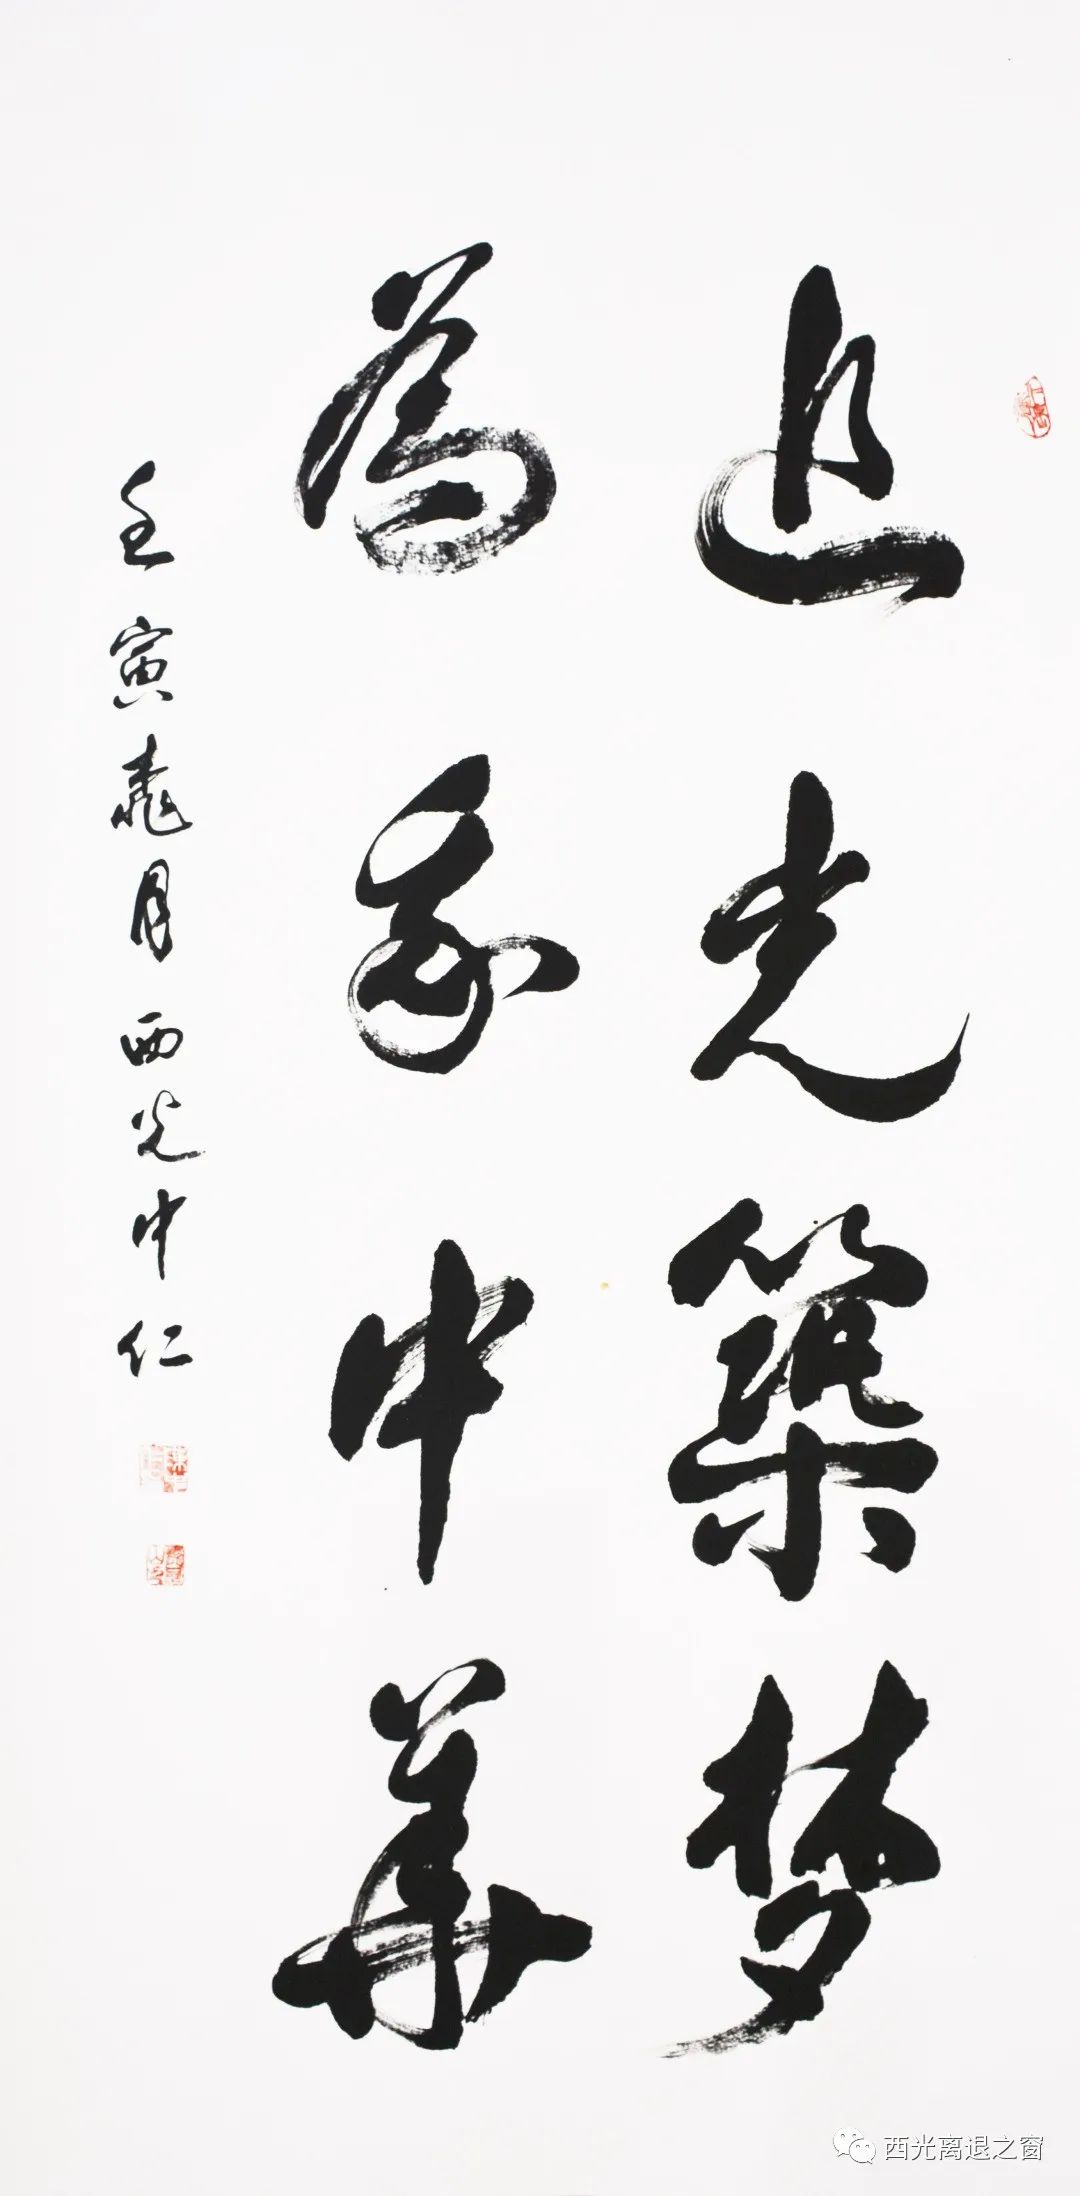 追光築梦
為我中華
壬寅桃月西光中仁
西光离退之窗